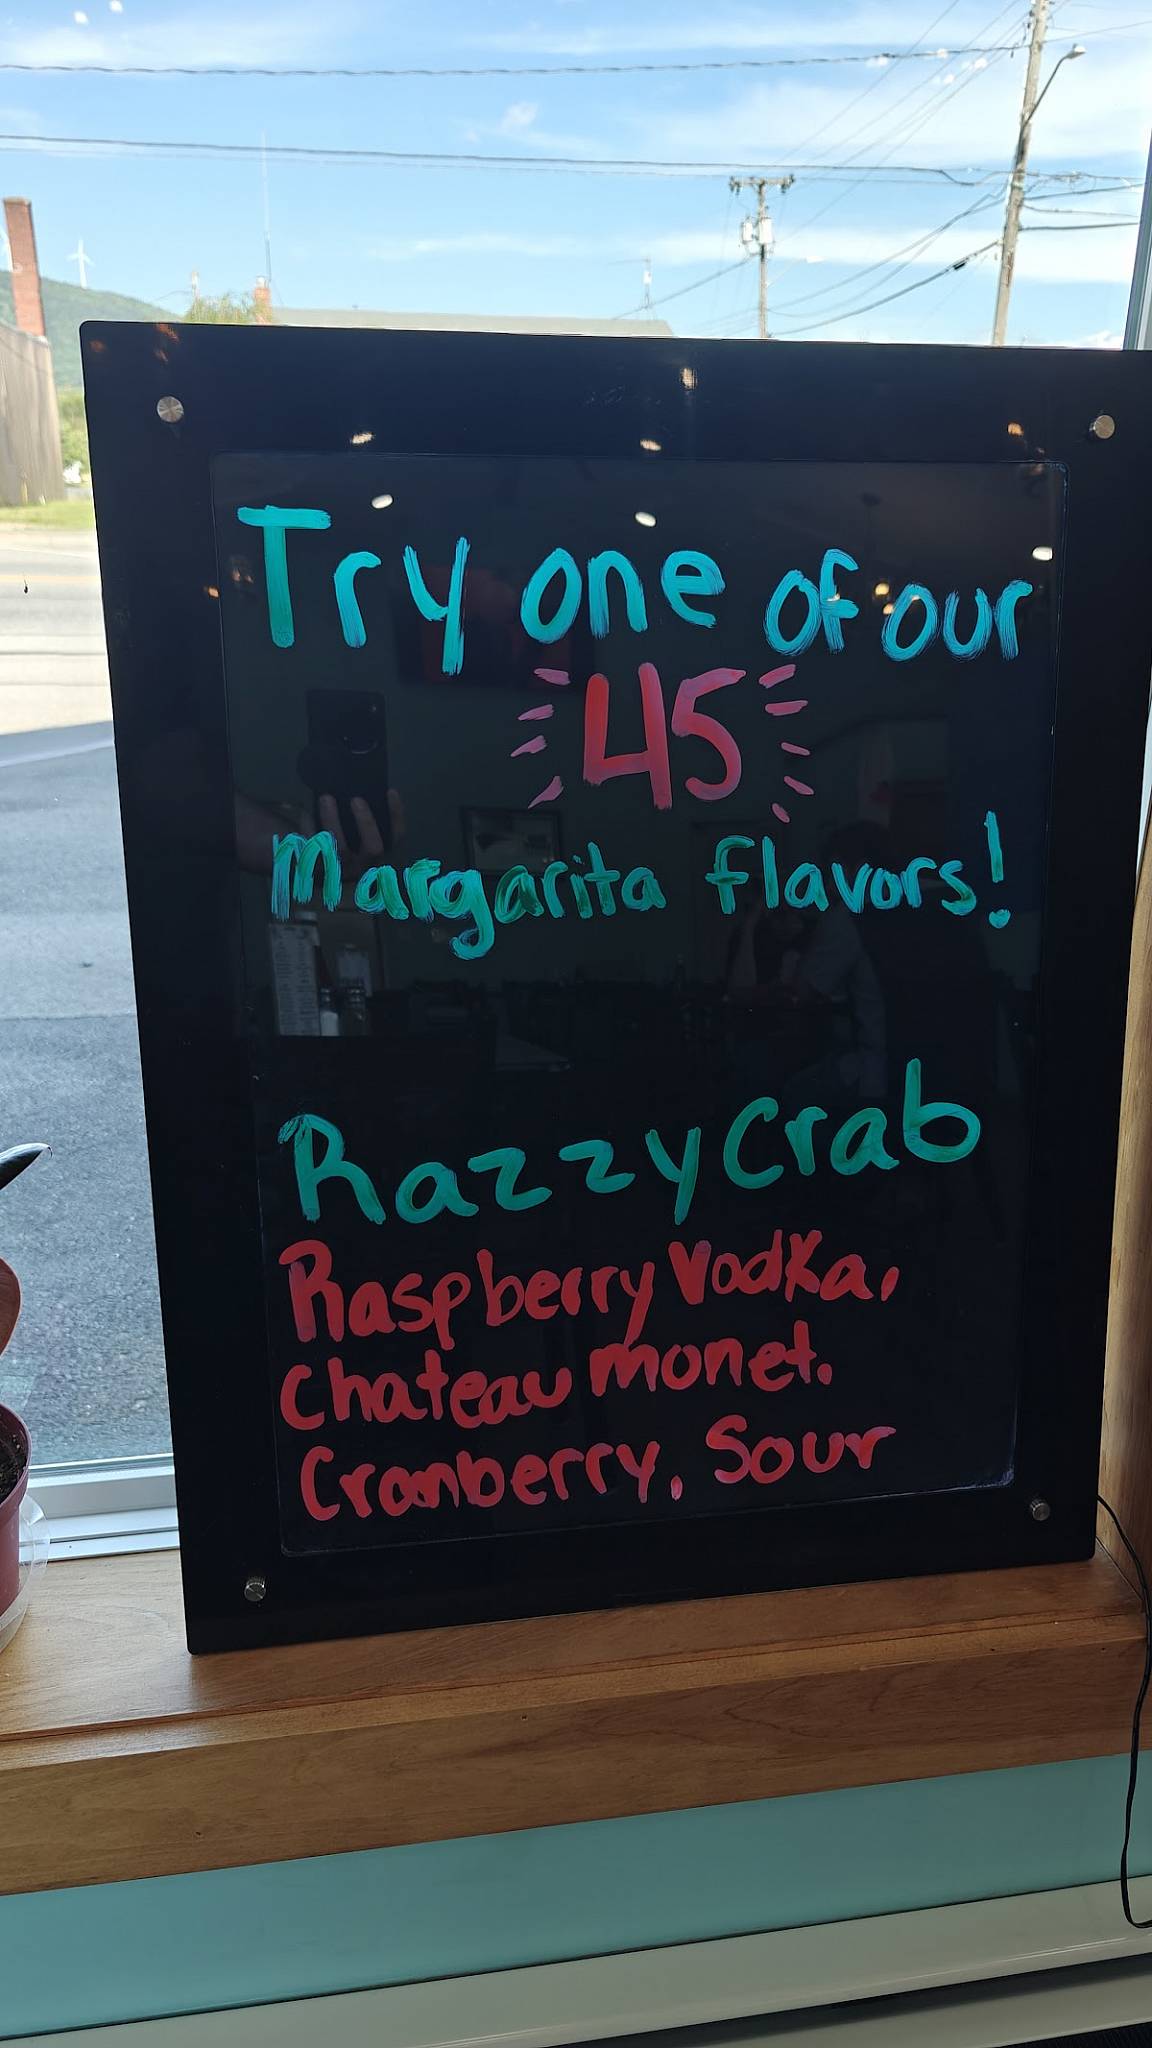 Try one of our
45
Margarita flavors!
Razzy Crab
Raspberry Vodka,
Chateau monet.
Cranberry, Sour